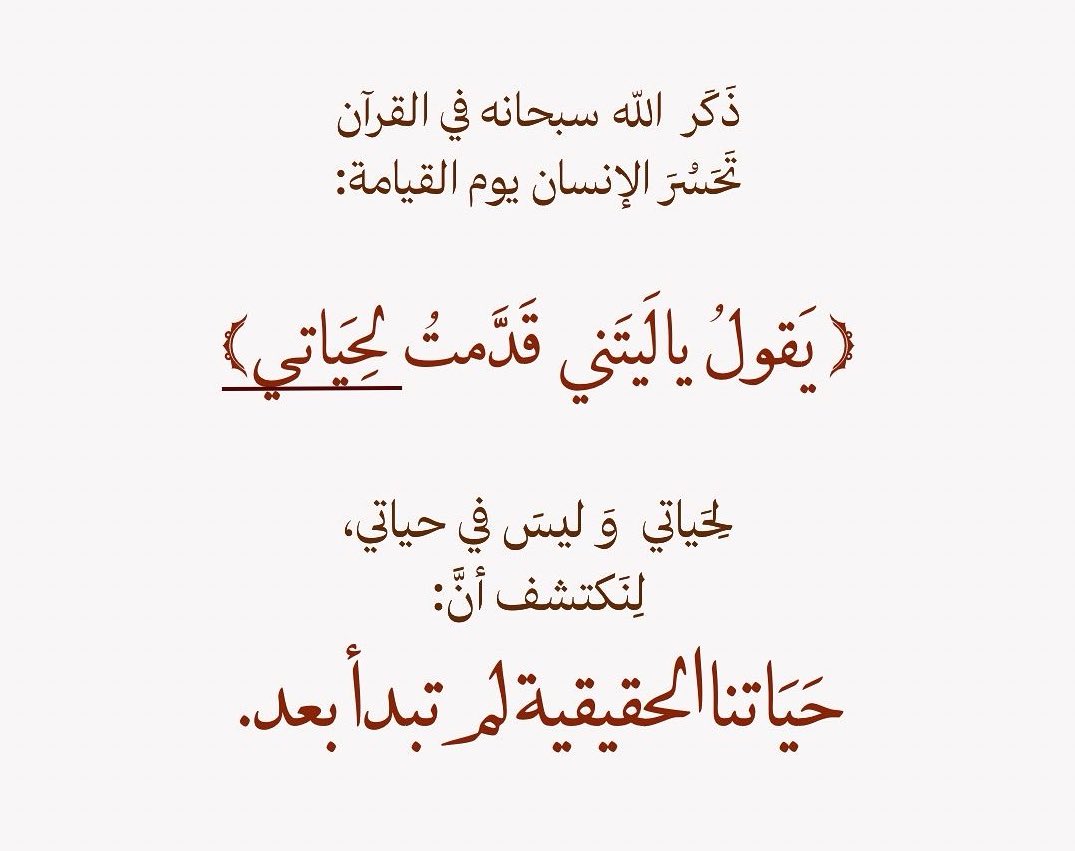 ذَكَر الله سبحانه في القرآن
تَحَسُرَ الإنسان يوم القيامة:
﴿يَقولُ يالَيتَني قَدَّمتُ لِحَياتي﴾
لِحَياتي وَ ليسَ في حياتي،
لِنَكتشف أنَّ:
حَيَاتنا الحقيقية لم تبدأ بعد.